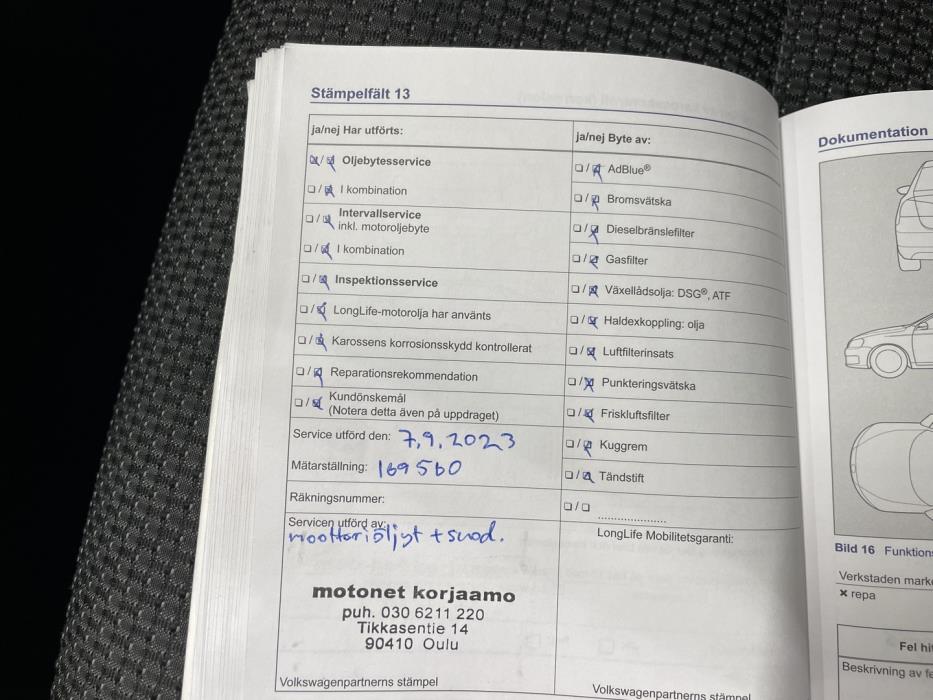 Stämpelfält 13
ja/nej Har utförts:
☒/☒ Oljebytesservice
☐/☒ I kombination
☐/☒ Intervallservice
inkl. motoroljebyte
☐/☒ I kombination
☐/☒ Inspektionsservice
☐/☒ LongLife-motorolja har använts
☐/☒ Karossens korrosionsskydd kontrollerat
☐/☒ Reparationsrekommendation
☐/☒ Kundönskemål
(Notera detta även på uppdraget)
Service utförd den: 7.9.2023
Mätarställning: 169560
Räkningsnummer:
Servicen utförd av:
moottoriöljyt + suod.
motonet korjaamo
puh. 030 6211 220
Tikkasentie 14
90410 Oulu
Volkswagenpartnerns stämpel
ja/nej Byte av:
☐/☒ AdBlue®
☐/☒ Bromsvätska
☐/☒ Dieselbränslefilter
☐/☒ Gasfilter
☐/☒ Växellådsolja: DSG®, ATF
☐/☒ Haldexkoppling: olja
☐/☒ Luftfilterinsats
☐/☒ Punkteringsvätska
☐/☒ Friskluftsfilter
☐/☒ Kuggrem
☐/☒ Tändstift
☐/☐ ....................
LongLife Mobilitetsgaranti:
Volkswagenpartnerns stämpel
Dokumentation
Bild 16 Funktions
Verkstaden marke
× repa
Fel hi
Beskrivning av fe